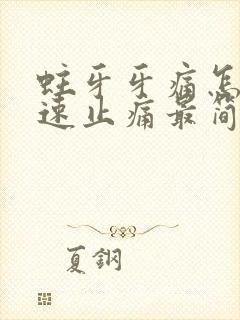 蛀牙牙痛怎
速止痛最简
夏鋼